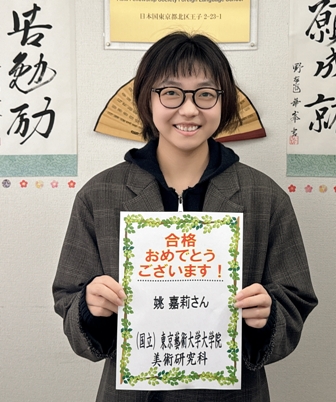 日本国東京都北区王子 2-23-1
苦勉励
願成就
合格
おめでとう
ございます！
姚 嘉莉さん
(国立) 東京藝術大学大学院
美術研究科